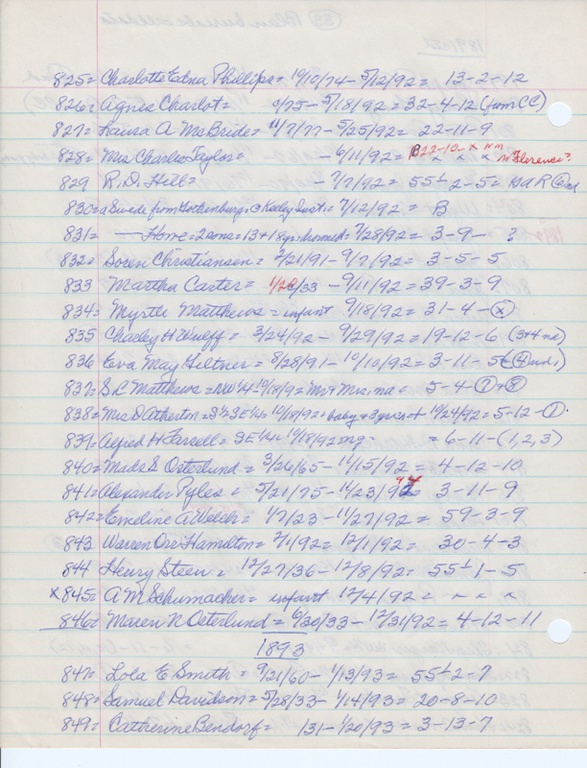 825= Charlotte Edna Phillips= 10/10/74- 5/12/92= 13-2-12
826= Agnes Charlot= 0/75- 5/18/92= 32-4-12 (from CC)
827= Laura A McBride= 11/7/77- 5/25/92= 22-11-9
828= Mrs Charles Taylor= - 6/11/92= B22-10-x "Florence"?
829 R. D. Hill= - 7/7/92= 55½-2-5=
830= a Swede from Gothenburg, @ Keeley Inst.= 7/12/92= B
831= — Horne= 2 sons= 13+18 yrs= drowned= 7/28/92= 3-9- ?
832= Soren Christiansen= 2/21/91- 9/7/92= 3-5-5
833 Martha Carter= 1/28/33 - 9/11/92= 39-3-9
834= Myrtle Matthews= infant 9/18/92= 31-4-(x)
835 Charley H Wulff= 3/24/92- 9/29/92= 19-12-6 (3+4 nd)
836 Eva May Giltner= 8/28/91- 10/10/92= 3-11-5
837= S. C. Matthews= NW¼ 10/18/92= Mr + Mrs, ma= 5-4-(7)+(8)
838= Mrs D Atherton= S½ SE¼= 10/18/92= baby + 3 yrs old + 10/24/92= 5-12-(1)
839= Alfred H Farrell= SE¼= 10/18/92 mg. = 6-11-(1,2,3)
840= Made S Osterlund= 3/26/65- 11/15/92= 4-12-10
841= Alexander Pyles= 5/21/75- 11/23/94= 3-11-9
842= Emeline A Welch= 1/7/23- 11/27/92= 59-3-9
843 Warren Orr Hamilton= 2/1/92= 12/1/92= 30-4-3
844 Henry Steen= 12/27/36- 12/8/92= 55½-1-5
x 845= A M Schumacher= infant 12/4/92= x x x
846= Maren N Osterlund= 6/30/33- 12/31/92= 4-12-11
1893
847= Lola E Smith= 9/21/60- 1/13/93= 55½-2-7
848= Samuel Davidson= 5/28/33- 1/14/93= 20-8-10
849= Catherine Bendorf= 131- 1/20/93= 3-13-7